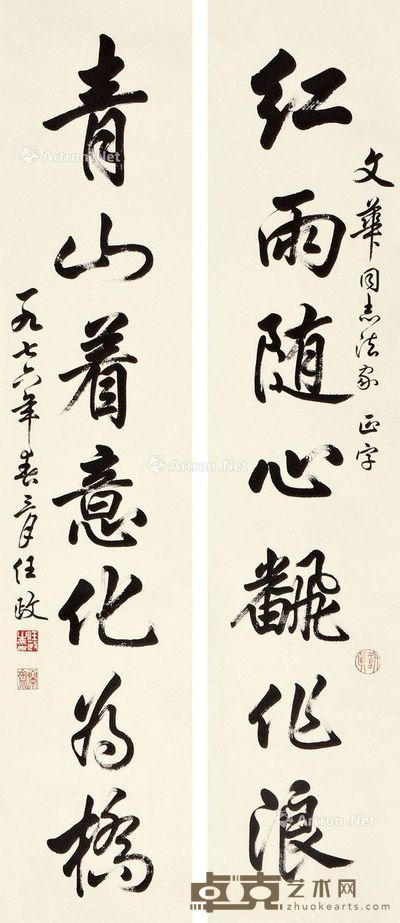 红雨随心飜作浪
文華同志法家 正字
青山着意化为橋
一九七六年春三月任政
Artron.Net
Artron.Net
Artron.Net
卓克艺术网
zhuokearts.com